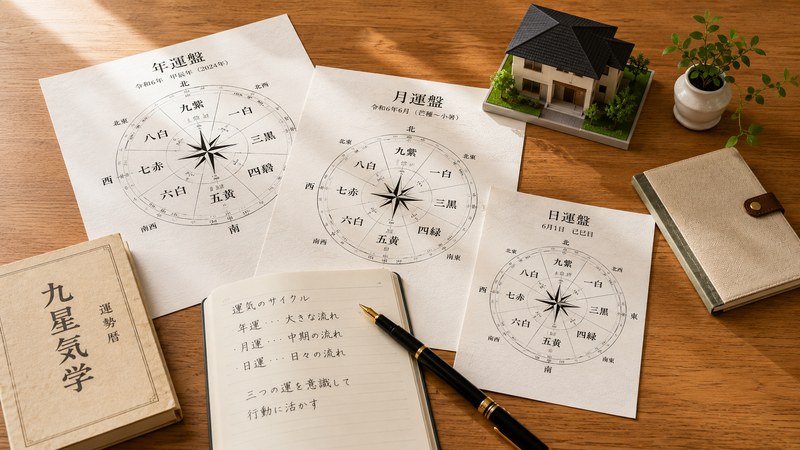 年運盤
令和6年 甲辰年（2024年）
北
北東
北西
九紫
一白
八白
三黒
七赤
四
六白
五黄
西
南西
南
月運盤
令和6年6月（芒種〜小暑）
北
北西
北東
九紫
一白
八白
三黒
七赤
四緑
六白
五黄
西
東
南西
南東
南
日運盤
6月1日 己巳日
北
北東
北西
九紫
一白
八白
三黒
七赤
四緑
六白
五黄
西
東
南西
南東
南
九星気学
運勢暦
運気のサイクル
年運・・・大きな流れ
月運・・・中期の流れ
日運・・・日々の流れ
三つの運を意識して
行動に活かす